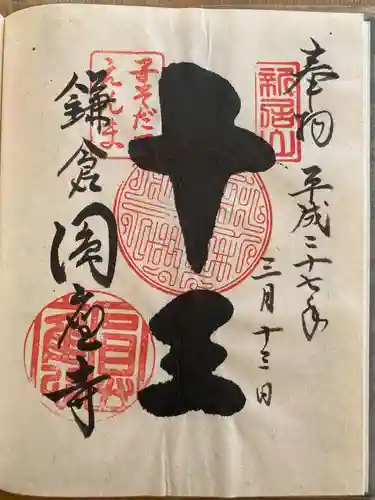 奉拝
平成二十七年
三月十三日
新居山
十王
子そだ
えんま
鎌倉
圓應寺